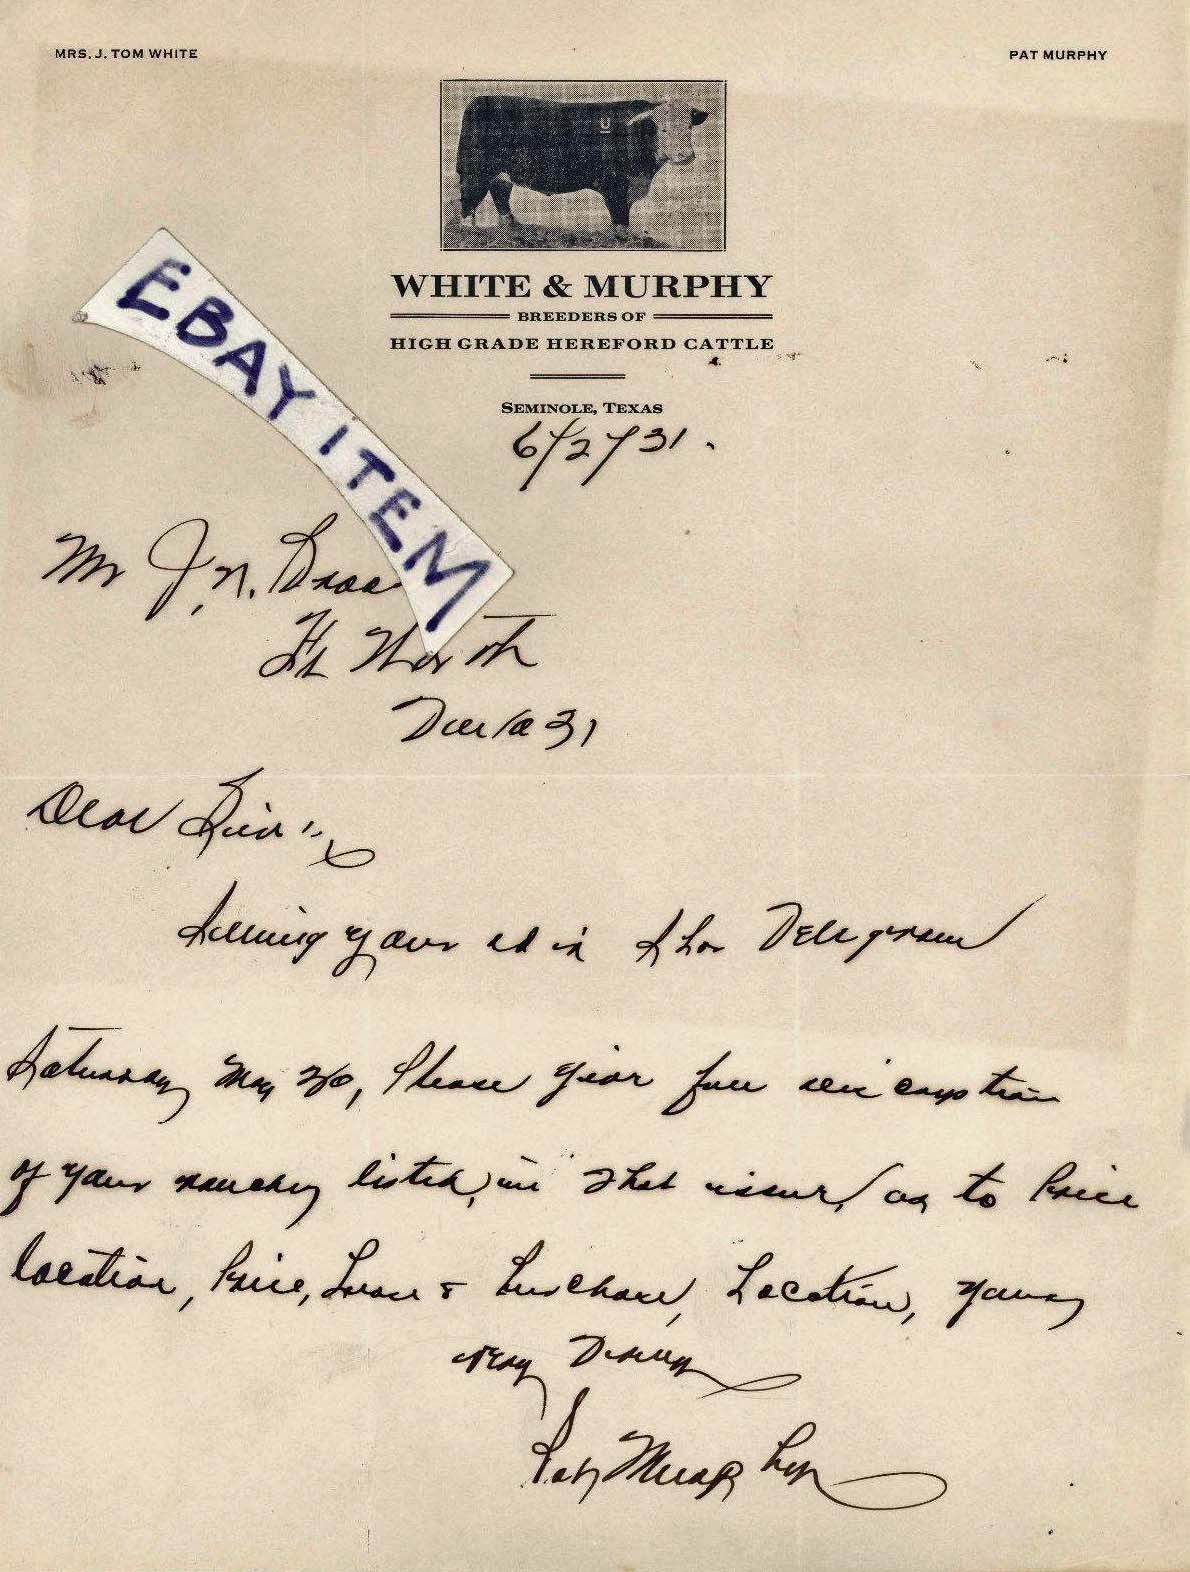 MRS. J. TOM WHITE
PAT MURPHY
U
WHITE & MURPHY
BREEDERS OF
HIGH GRADE HEREFORD CATTLE
SEMINOLE, TEXAS
6/2/31.
EBAY ITEM
Mr J. N.
Ft Worth
31
Dear Sir:
Seeing your ad in Star Telegram
Saturday May 30, Please give full
of your listed, in that issue, as to Price
location, Price, & Purchase, Location, yours
very Truly
Pat Murphy